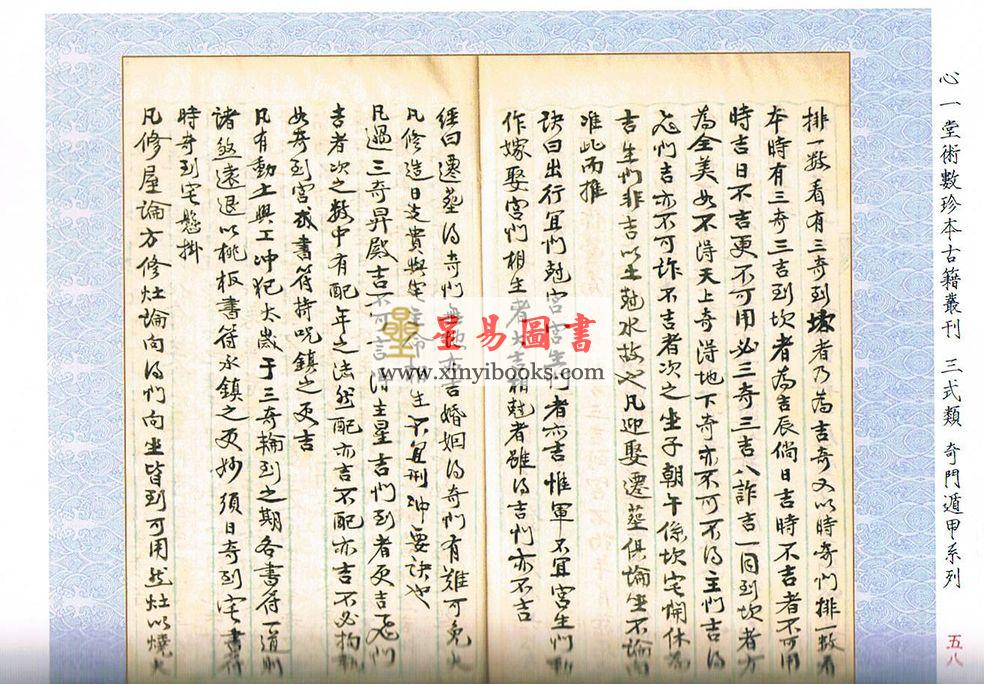 心一堂術數珍本古籍叢刊 三式類 奇門遁甲系列
五八
排一数看有三奇到坎者乃為吉奇又以時奇们排一数看
本時有三奇三吉到坎者為吉辰倘日吉時不吉者不可用
時吉日不吉更不可用必三奇三吉八詐吉一同到坎者方
為全美如不得天上奇得地下奇亦不可不得主们吉得
飞们吉亦不可詐不吉者次之坐子朝午係坎宅開休為
吉生们非吉以土尅水故也凡迎娶遷葬俱論坐不論向
准此而推
訣曰出行宜们尅宮宮生们者亦吉惟軍不宜宮生们
作嫁娶宮们相生者大吉相尅者雖得吉们亦不吉
經曰遷葬得奇们亦吉婚姻得奇们有难可免
凡修造日支貴與宅主命相生不宜刑冲要訣也
凡遇三奇昇殿吉不可言主星吉们到者更吉飞们
吉者次之数中有配年之法然配亦吉不配亦吉不必拘
如奇到宮或書符持呪鎮之更吉
凡有動土興工冲犯太歲于三奇輪到之期各書符一道則
諸煞遠退以桃板書符水鎮之更妙須日奇到宅書符
時奇到宅懸掛
凡修屋論方修灶論向得们向坐皆到可用然灶以燒火
星易圖書
www.xinyibooks.com